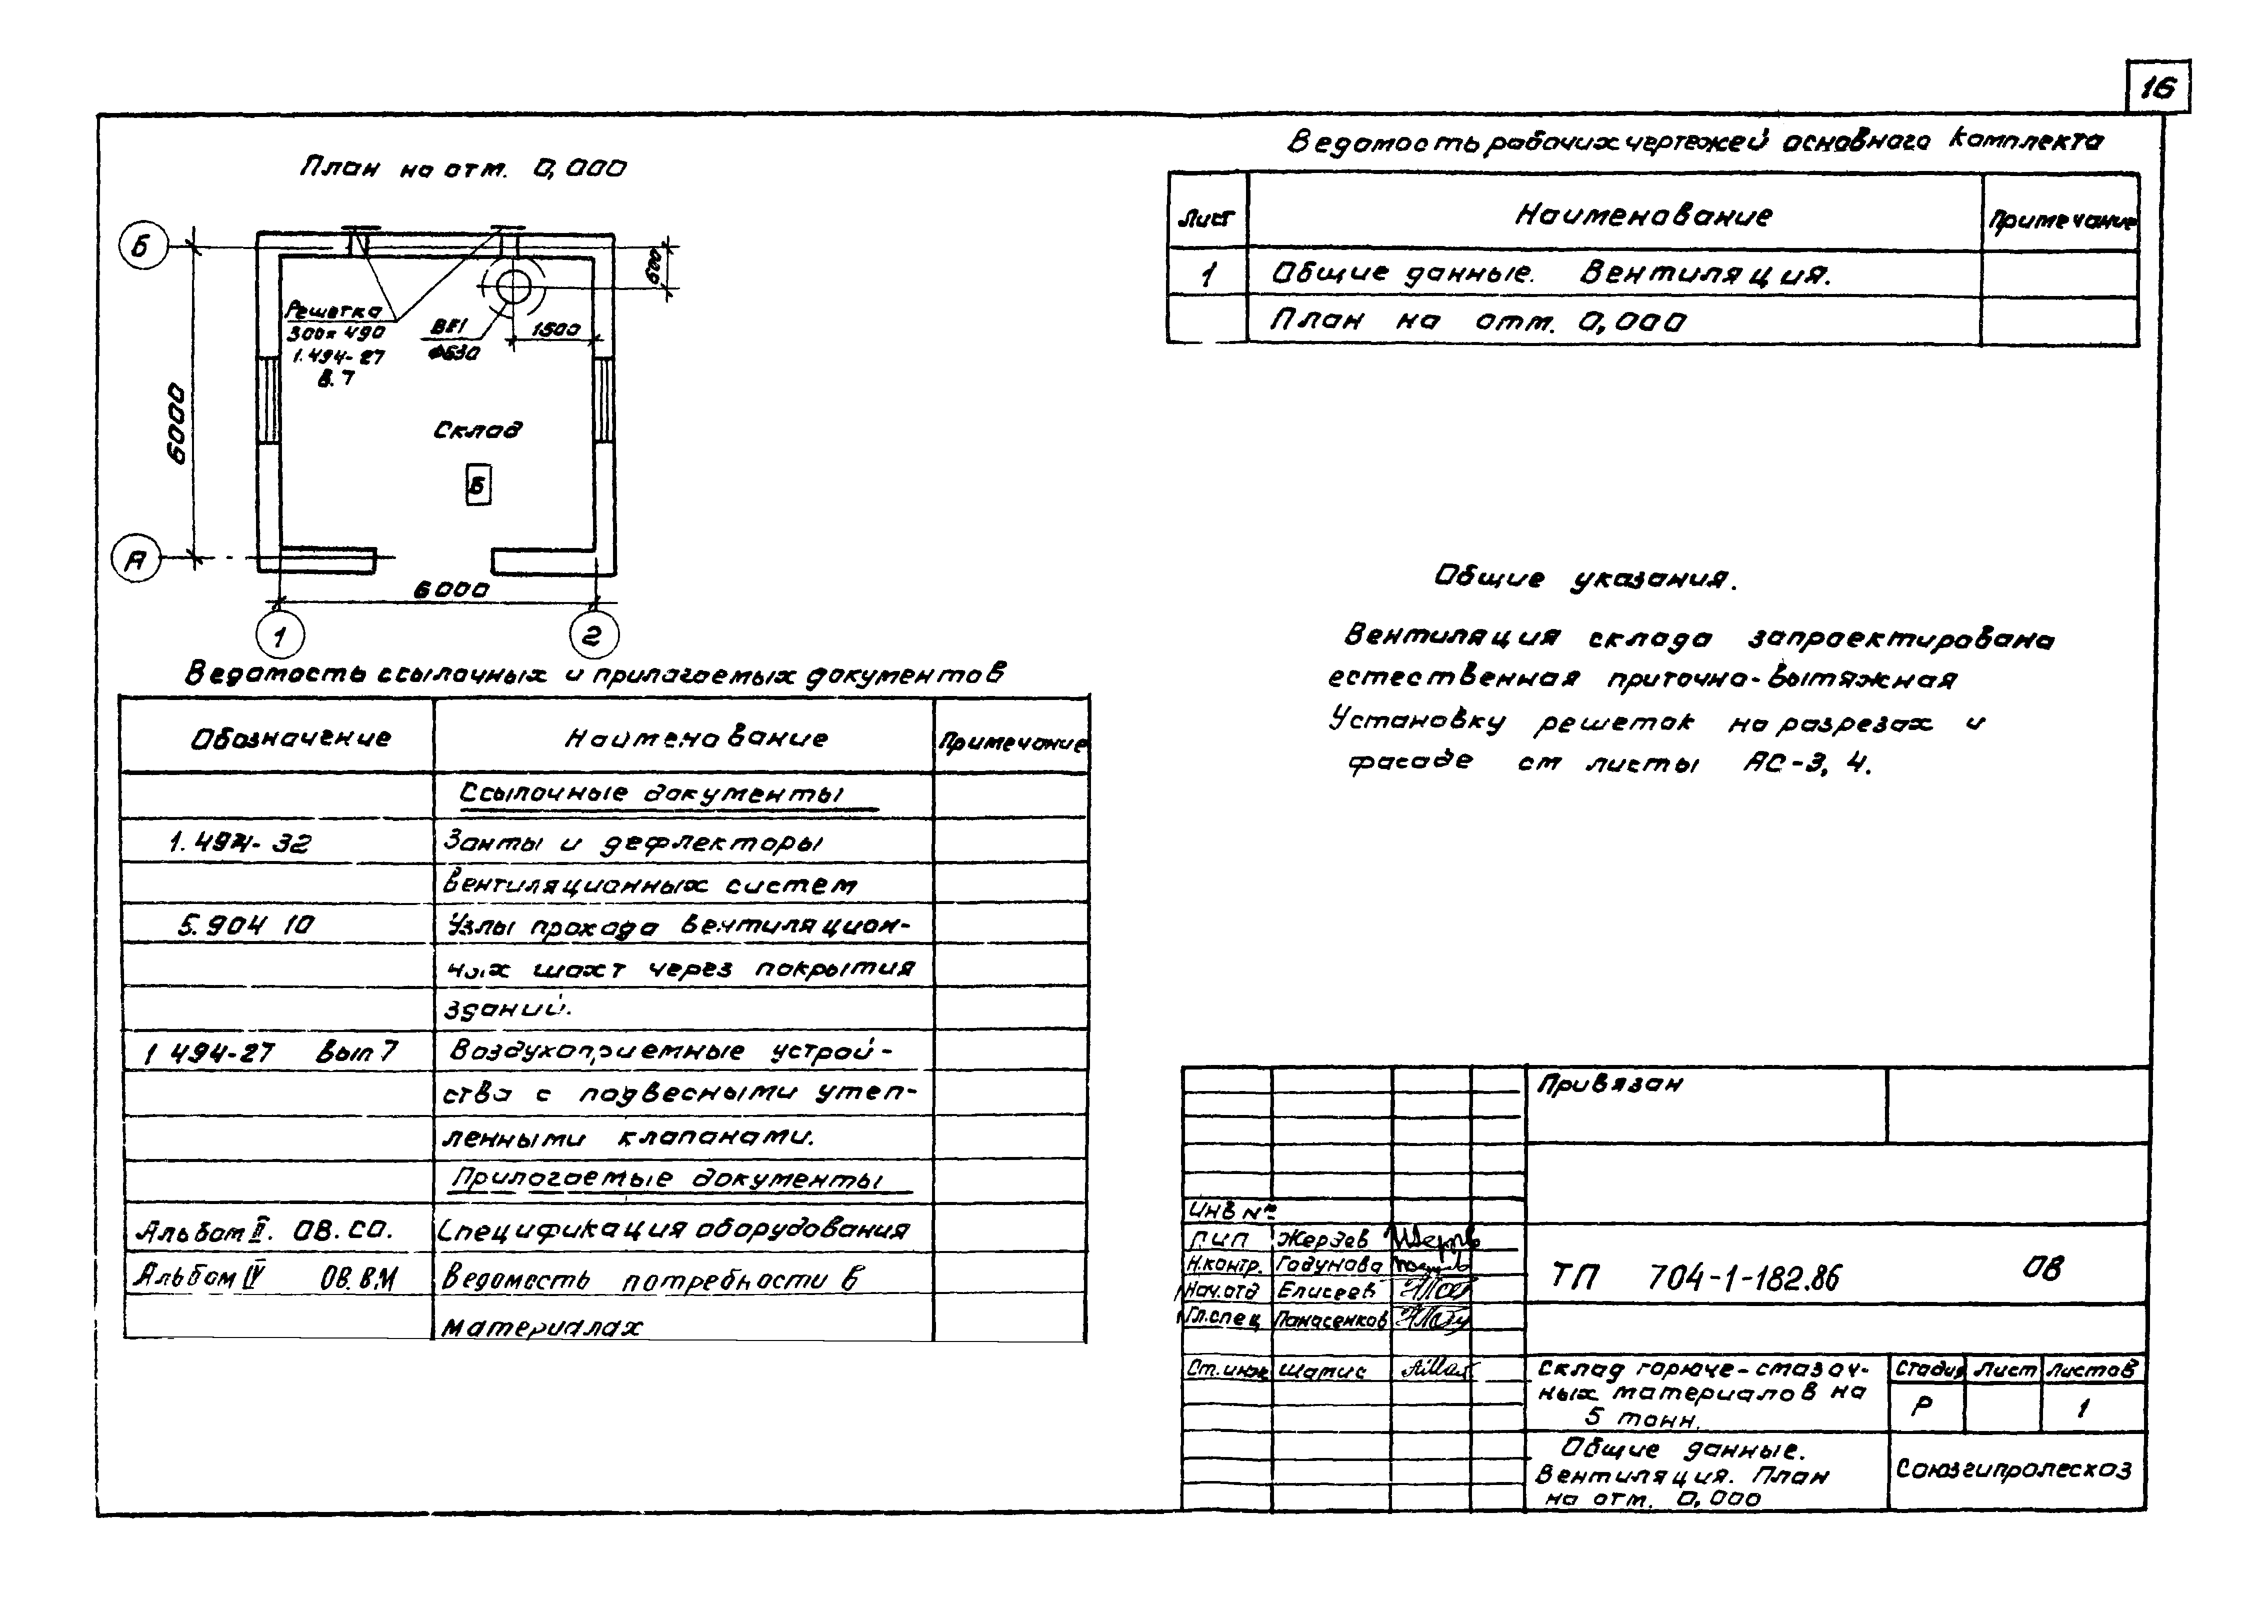 16
План на отм. 0,000
Б
600
Решетка
300х490
1.494-27
в. 7
ВЕ1
1500
6000
Склад
Б
А
6000
1
2
Ведомость ссылочных и прилагаемых документов
Обозначение Наименование Примечание
Ссылочные документы
1.494-32 Зонты и дефлекторы
вентиляционных систем
5.904 10 Узлы прохода вентиляцион-
ных шахт через покрытия
зданий.
1 494-27 вып 7 Воздухоприемные устрой-
ства с подвесными утеп-
ленными клапанами.
Прилагаемые документы
Альбом II. ОВ.СО. Спецификация оборудования
Альбом IV ОВ.ВМ Ведомость потребности в
материалах
Ведомость рабочих чертежей основного комплекта
Лист Наименование Примечание
1 Общие данные. Вентиляция.
План на отм. 0,000
Общие указания.
Вентиляция склада запроектирована
естественная приточно-вытяжная
Установку решеток на разрезах и
фасаде см листы АС-3, 4.
Привязан
Инв №
ГИП Жердев
Н.контр. Годунова
Нач.отд Елисеев
Гл.спец Панасенков
Ст.инж Шатис
ТП 704-1-182.86 ОВ
Склад горюче-смазоч-
ных материалов на
5 тонн.
Стадия Лист Листов
Р 1
Общие данные.
Вентиляция. План
на отм. 0,000
Союзгипролесхоз